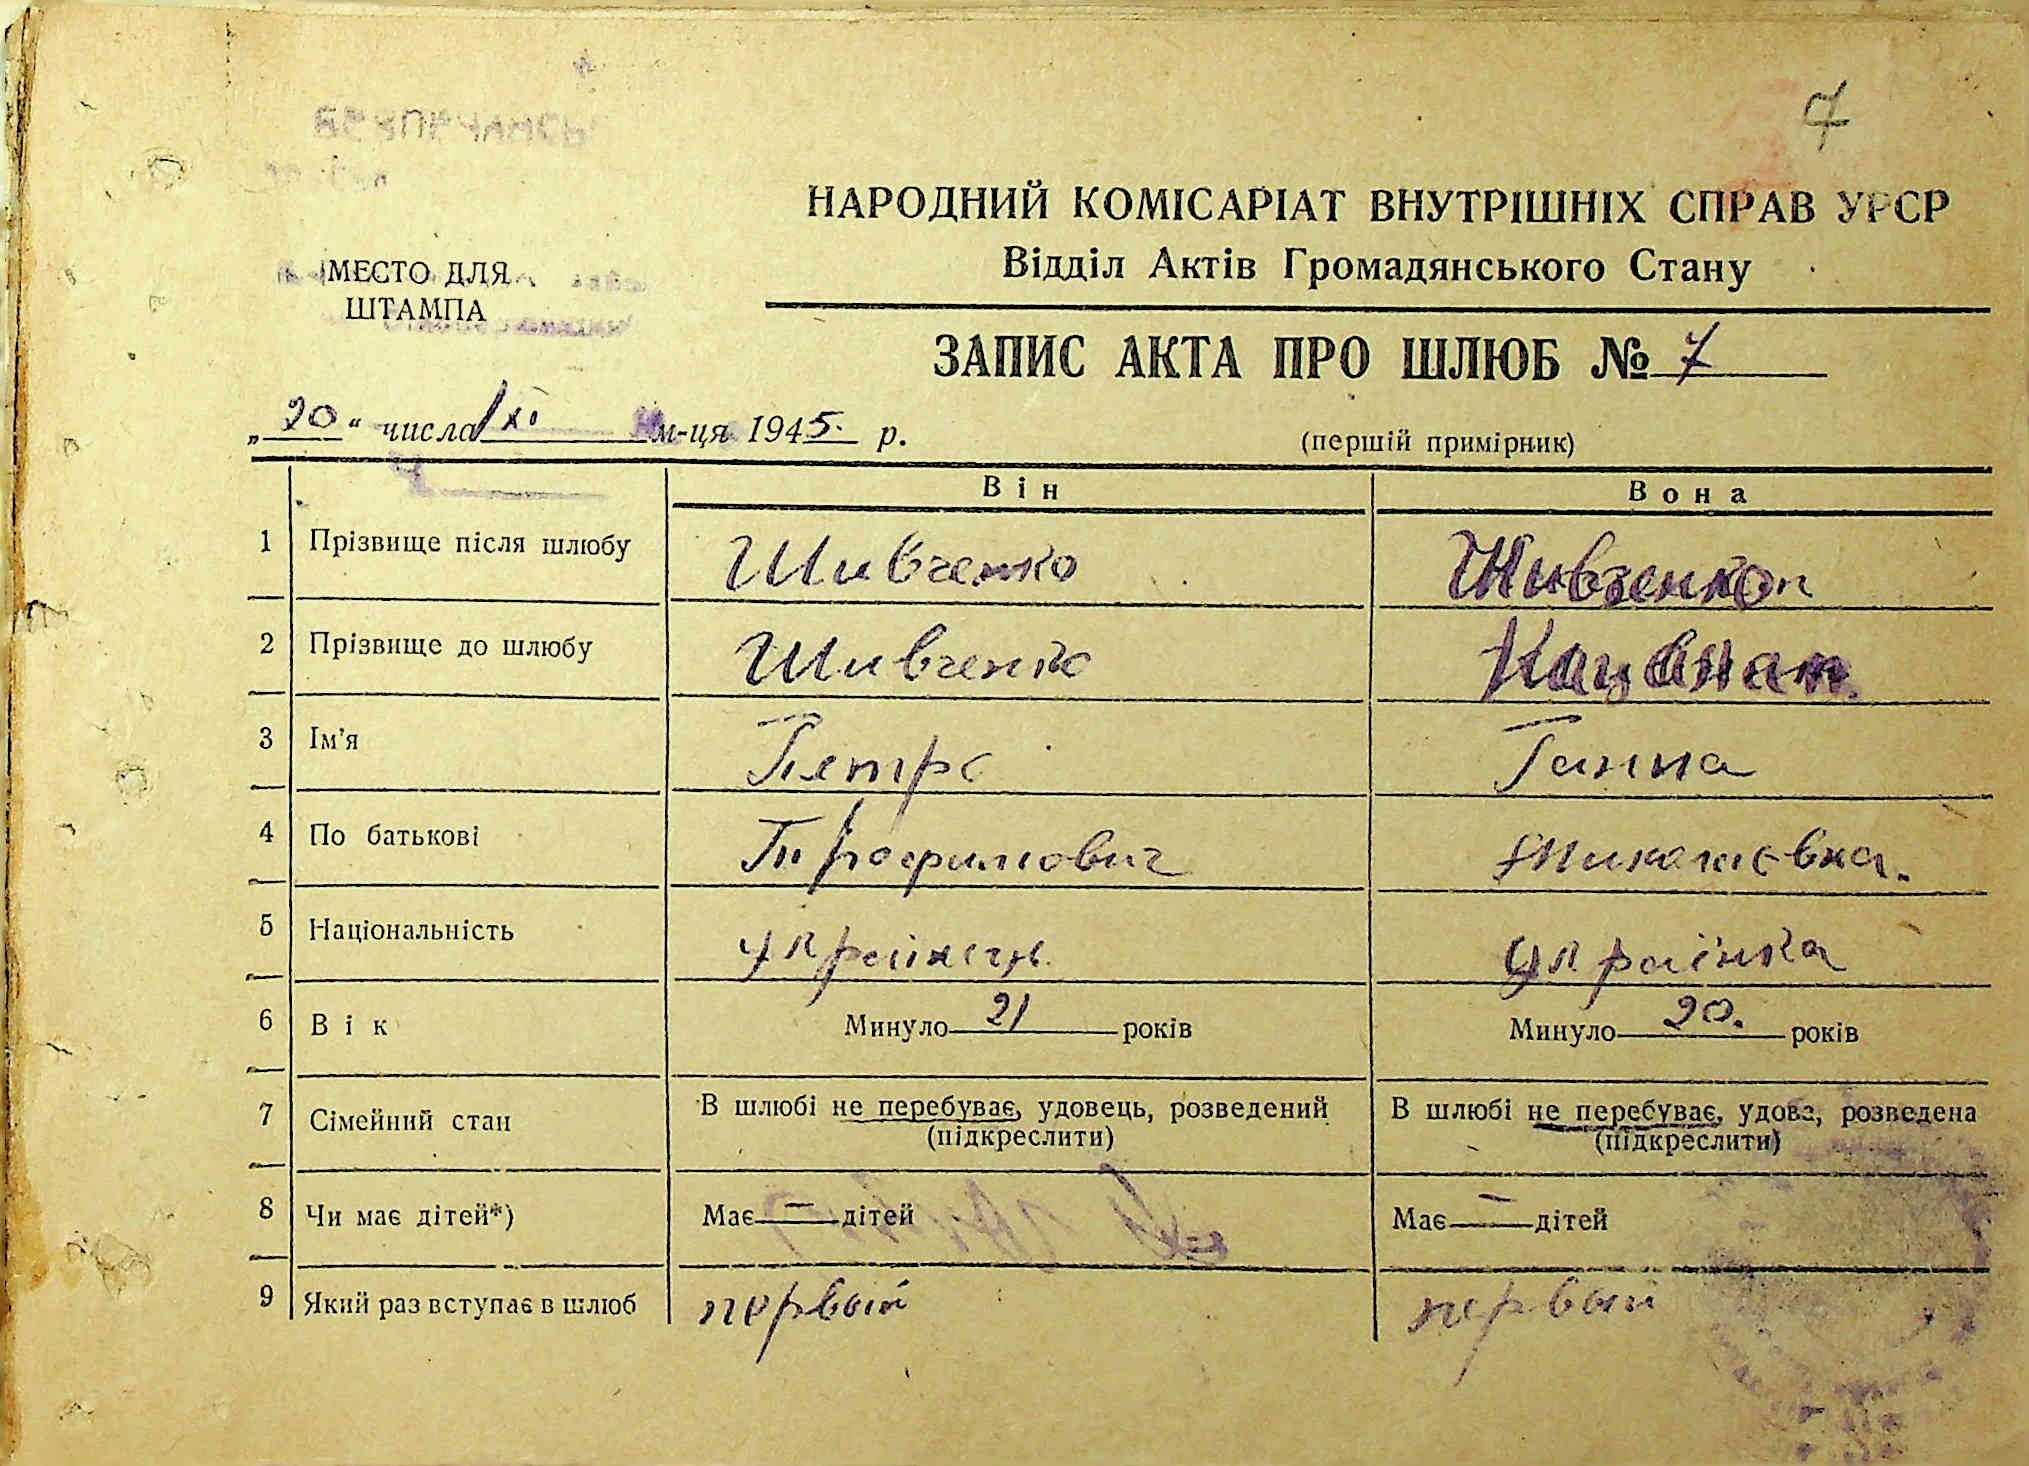 7
НАРОДНИЙ КОМІСАРІАТ ВНУТРІШНІХ СПРАВ УРСР
Відділ Актів Громадянського Стану
МЕСТО ДЛЯ
ШТАМПА
ЗАПИС АКТА ПРО ШЛЮБ № 7
„20“ числа XI м-ця 1945. р.
(першій примірник)
Він Вона
1 Прізвище після шлюбу Шивченко Шивченко
2 Прізвище до шлюбу Шивченко
3 Ім'я Петро Ганна
4 По батькові Трофимович Миколаєвна.
5 Національність українец. українка
6 Вік Минуло 21 років Минуло 20. років
7 Сімейний стан В шлюбі не перебуває, удовець, розведений (підкреслити) В шлюбі не перебуває, удова, розведена (підкреслити)
8 Чи має дітей*) Має — дітей Має — дітей
9 Який раз вступає в шлюб первый первый